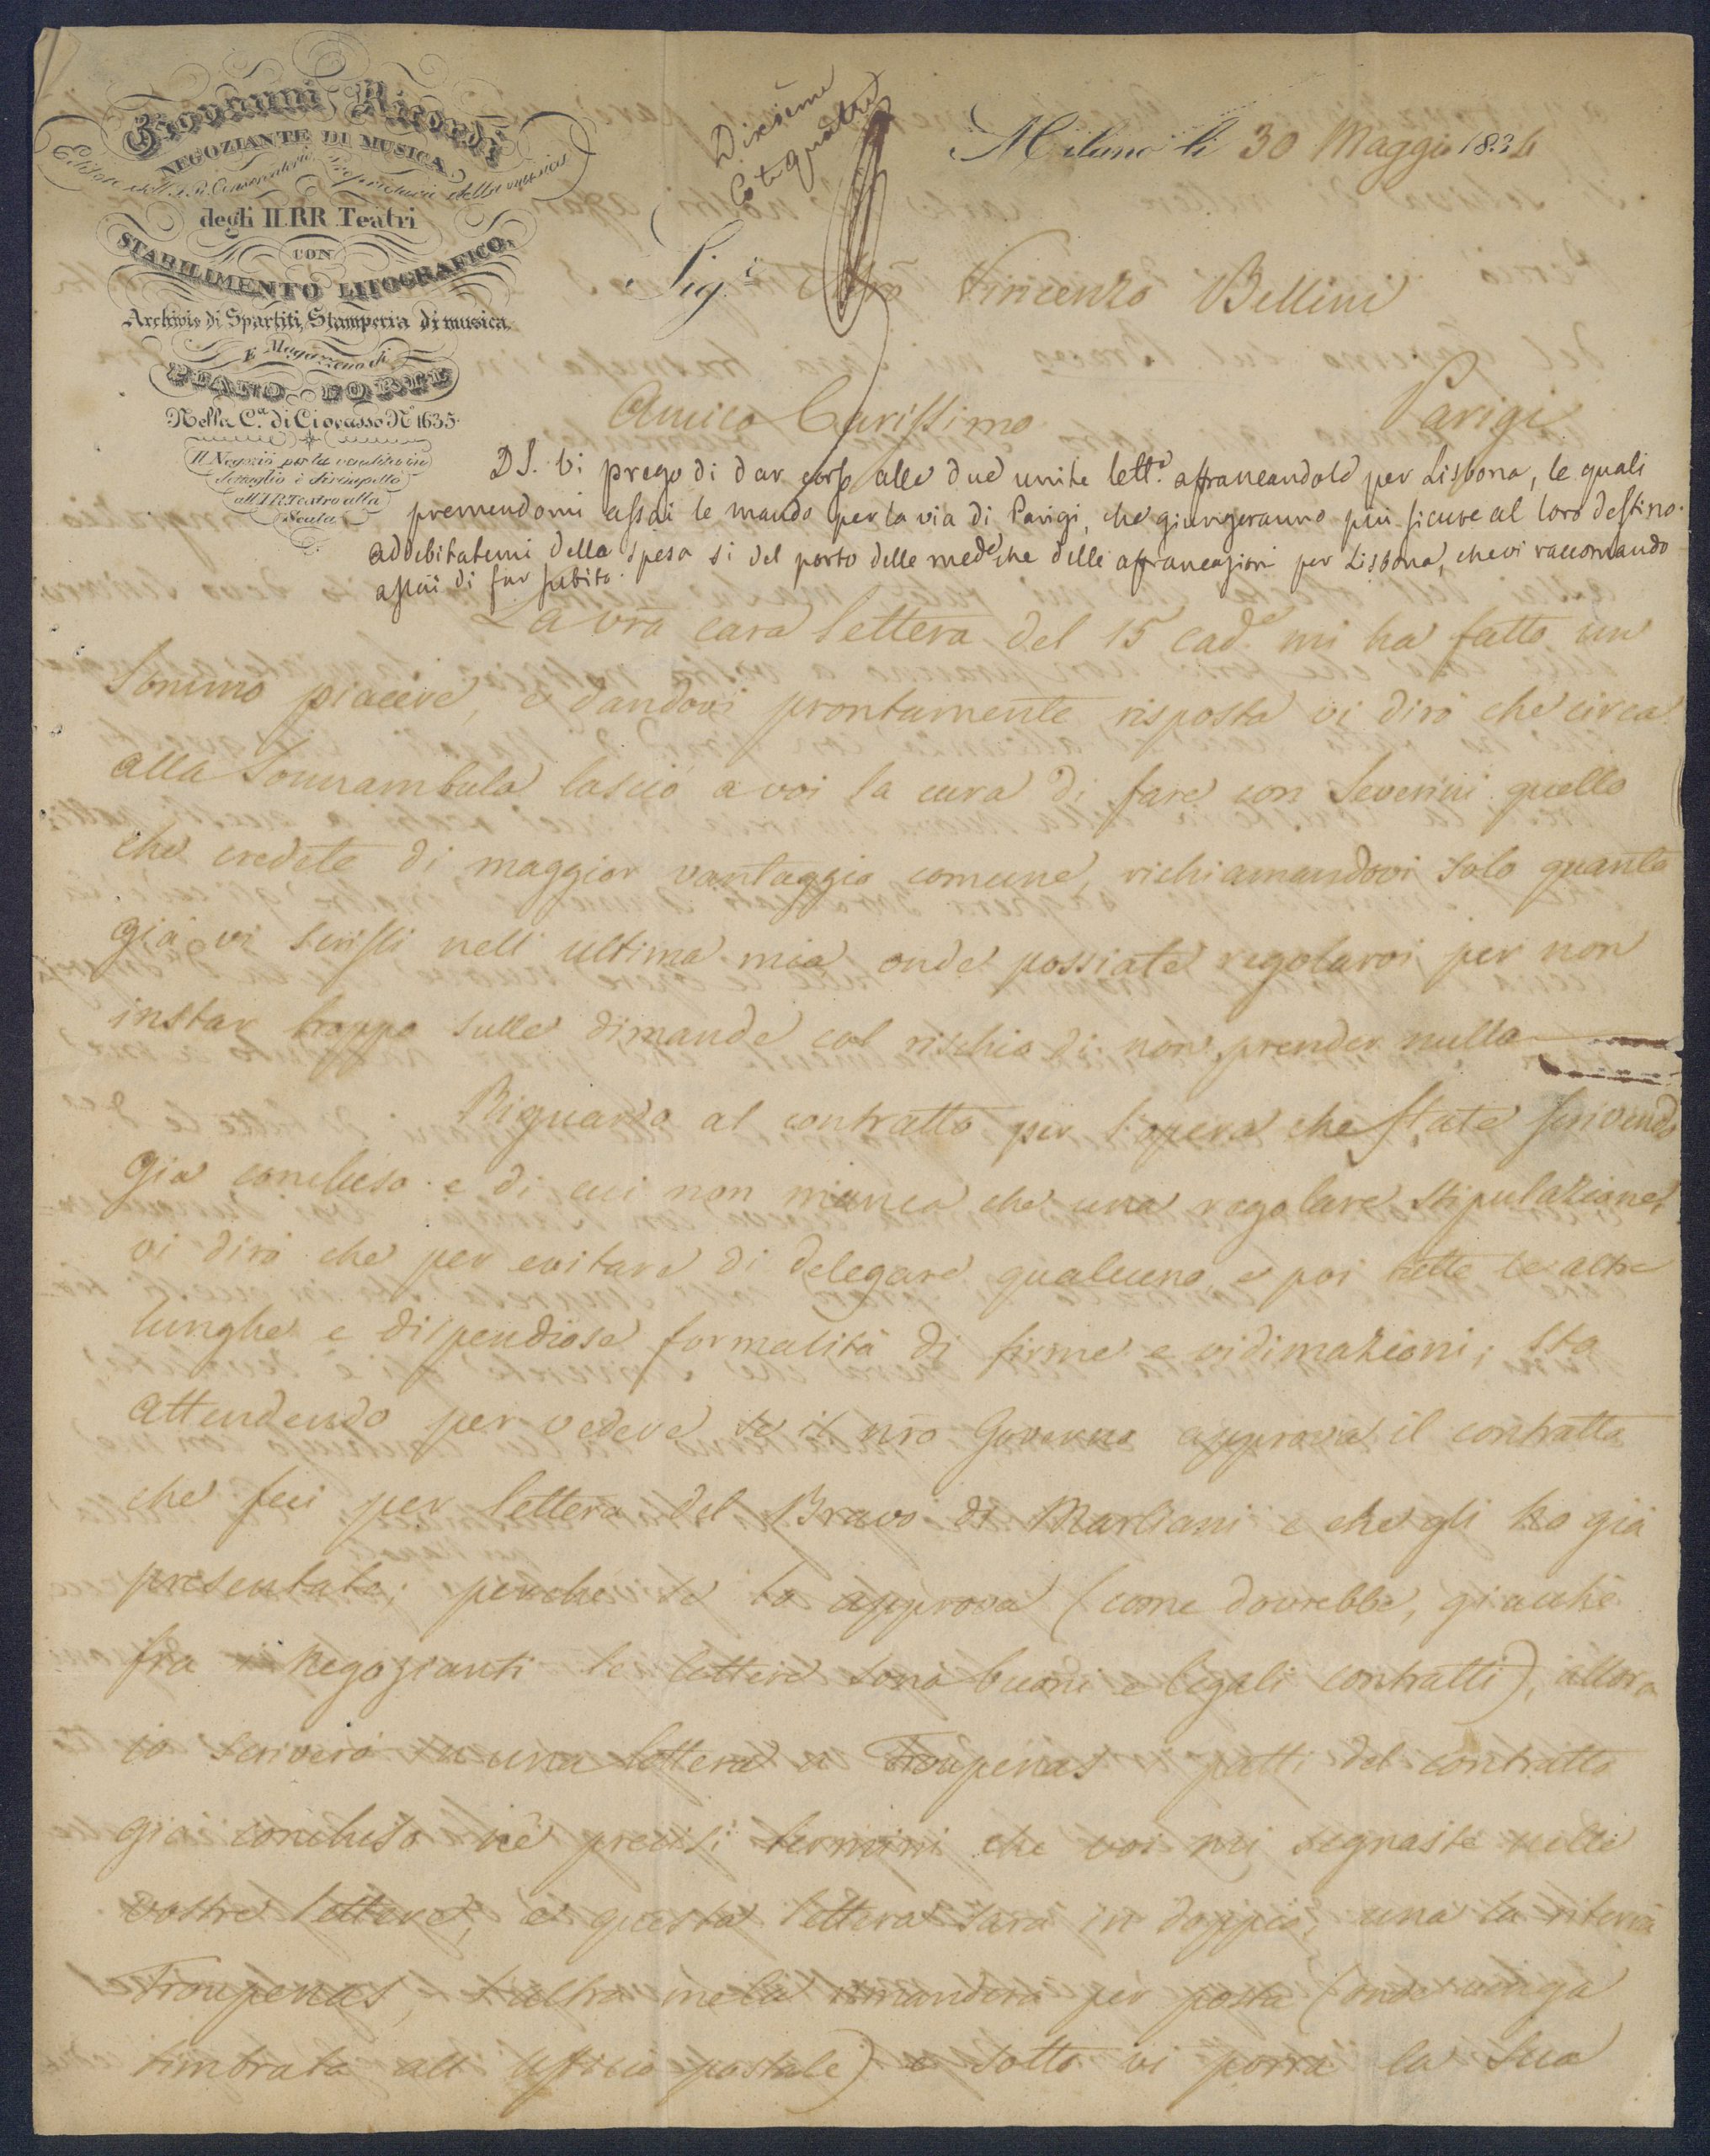 Giovanni Ricordi
NEGOZIANTE DI MUSICA
Editore dell'I.R. Conservatorio, Proprietario della musica
degli II.RR. Teatri
CON
STABILIMENTO LITOGRAFICO,
Archivio di Spartiti, Stamperia di musica,
E Magazzeno di
PIANO-FORTE
Nella C.a di Ciovasso No. 1635.
Il Negozio per la vendita in
dettaglio è dirimpetto
all'I.R. Teatro alla
Scala
Milano li 30 Maggio 1834
Sig.r Vincenzo Bellini
Parigi
Amico Carissimo
P.S. Vi prego di dar corso alle due unite lett.e affrancandole per Lisbona, le quali
premendomi assai le mando per la via di Parigi, che giungeranno più sicure al loro destino.
addebitatemi della spesa si del porto delle mede che delle affrancazioni per Lisbona, che vi raccomando
assai di far subito.
La vra cara lettera del 15 cad.e mi ha fatto un
sommo piacere, e dandovi prontamente risposta vi dirò che circa
alla Sonnambula lascio a voi la cura di fare con Severini quello
che credete di maggior vantaggio comune, richiamandovi solo quanto
già vi scrissi nell'ultima mia onde possiate regolarvi per non
instar troppo sulle dimande col rischio di non prender nulla
Riguardo al contratto per l'opera che state scrivendo
già concluso e di cui non manca che una regolare stipulazione,
vi dirò che per evitare di delegare qualcuno, e poi tutte le altre
lunghe e dispendiose formalità di firme e vidimazioni, sto
attendendo per vedere se il nro Governo approva il contratto
che feci per lettera del Bravo di Marliani e che gli ho già
presentato; perché se lo approva (come dovrebbe, giacché
fra Negozianti le lettere sono buoni e legali contratti), allora
io scriverò in una lettera a Troupenas i patti del contratto
già concluso ne' precisi termini che voi mi segnaste nelle
vostre lettere, e questa lettera sarà in doppio, una la riterrà
Troupenas, l'altra me la rimanderà per posta (onde venga
timbrata all'Ufficio postale) e sotto vi porrà la sua